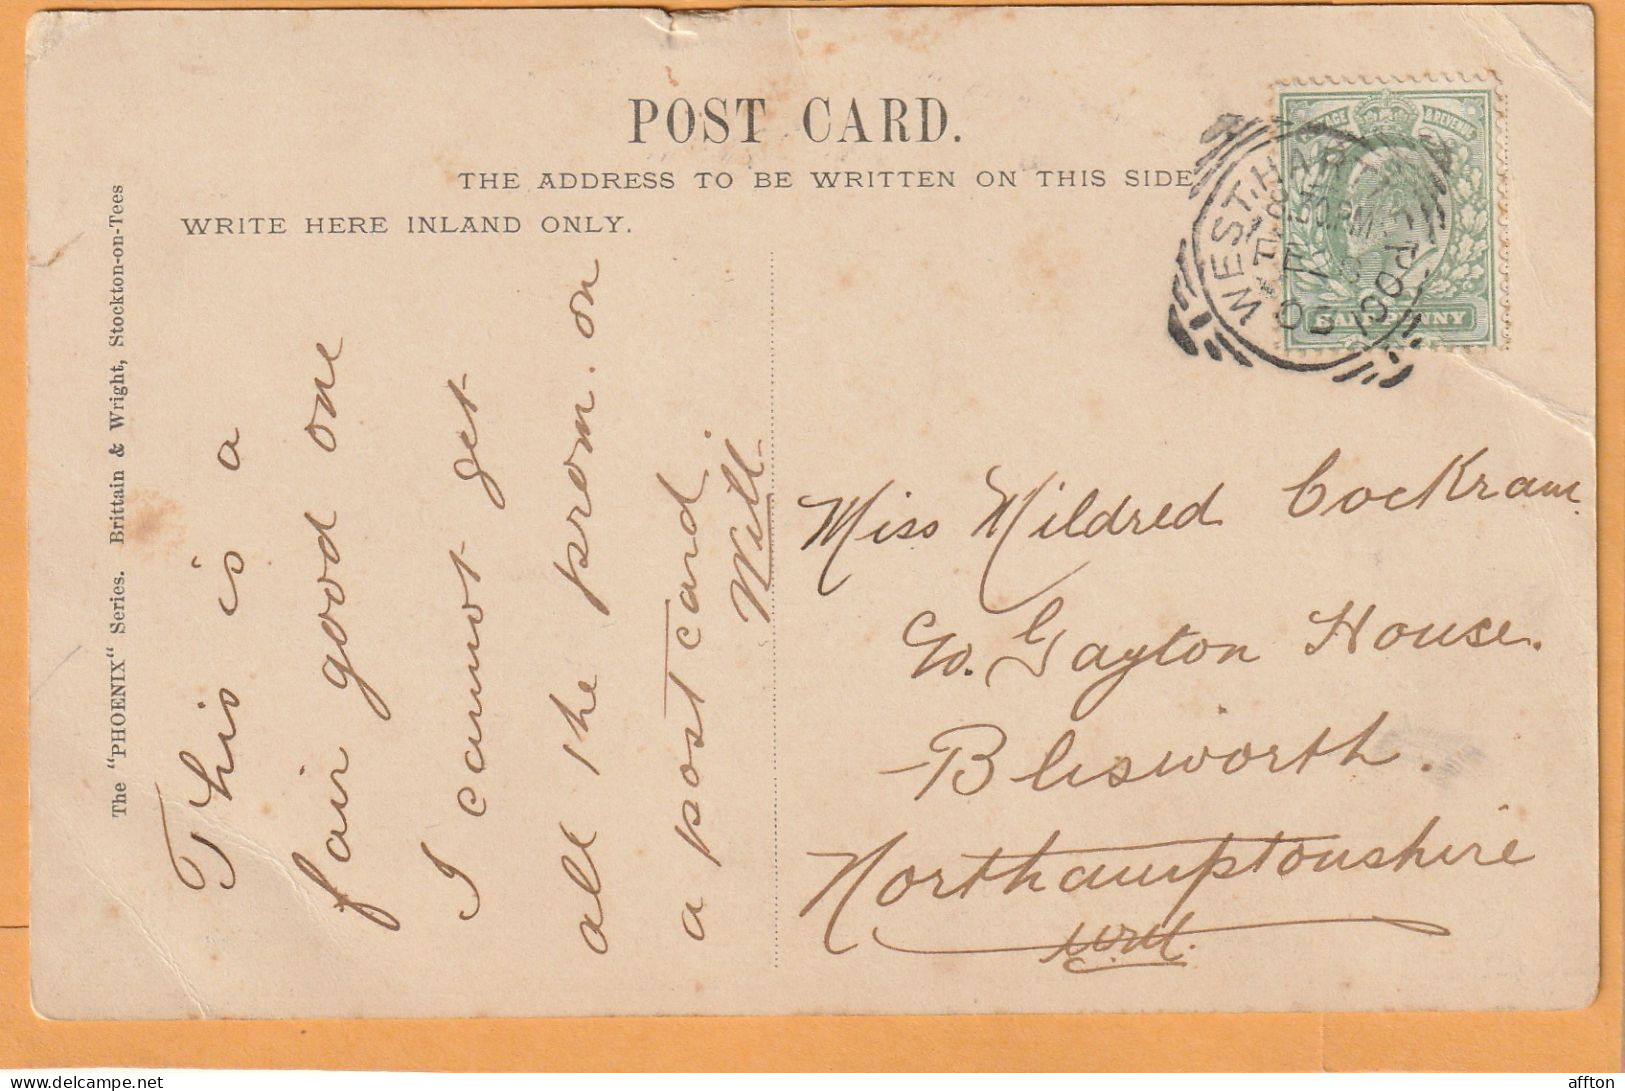 POST CARD.
THE ADDRESS TO BE WRITTEN ON THIS SIDE
WRITE HERE INLAND ONLY.
The "PHOENIX" Series. Brittain & Wright, Stockton-on-Tees
This is a
fair good one
I cannot get
all the prom. on
a post card.
Will.
POSTAGE & REVENUE
HALF PENNY
WEST HARTLEPOOL
Miss Mildred Cockram
Gayton House.
Blisworth.
Northamptonshire
delcampe.net
affton